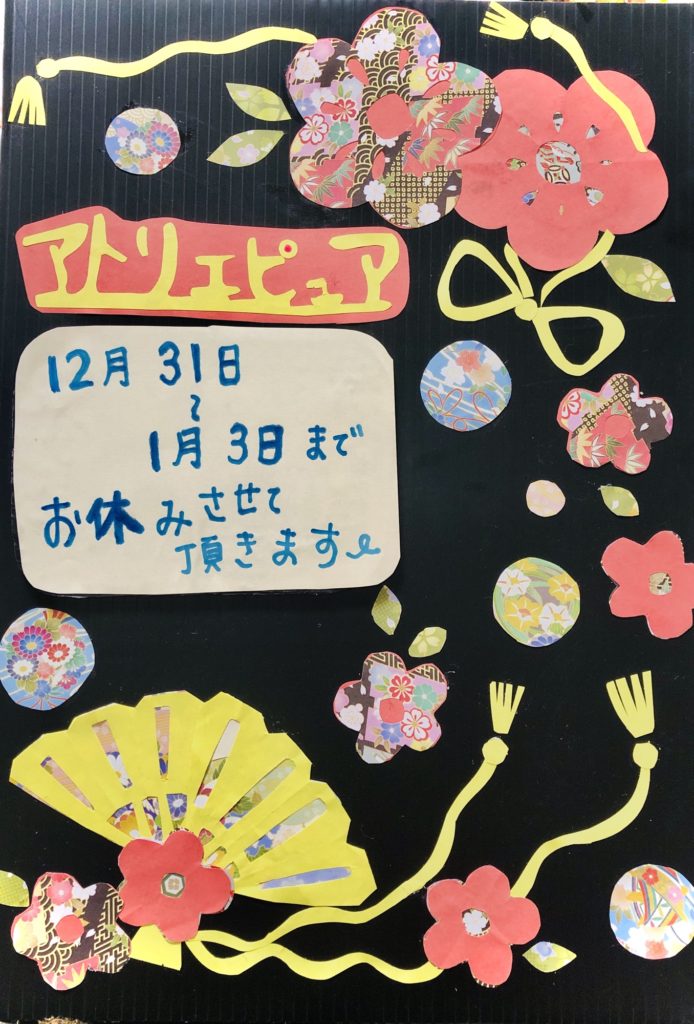 アトリエピュア
12月 31日
〜
1月 3日 まで
お休みさせて
頂きます